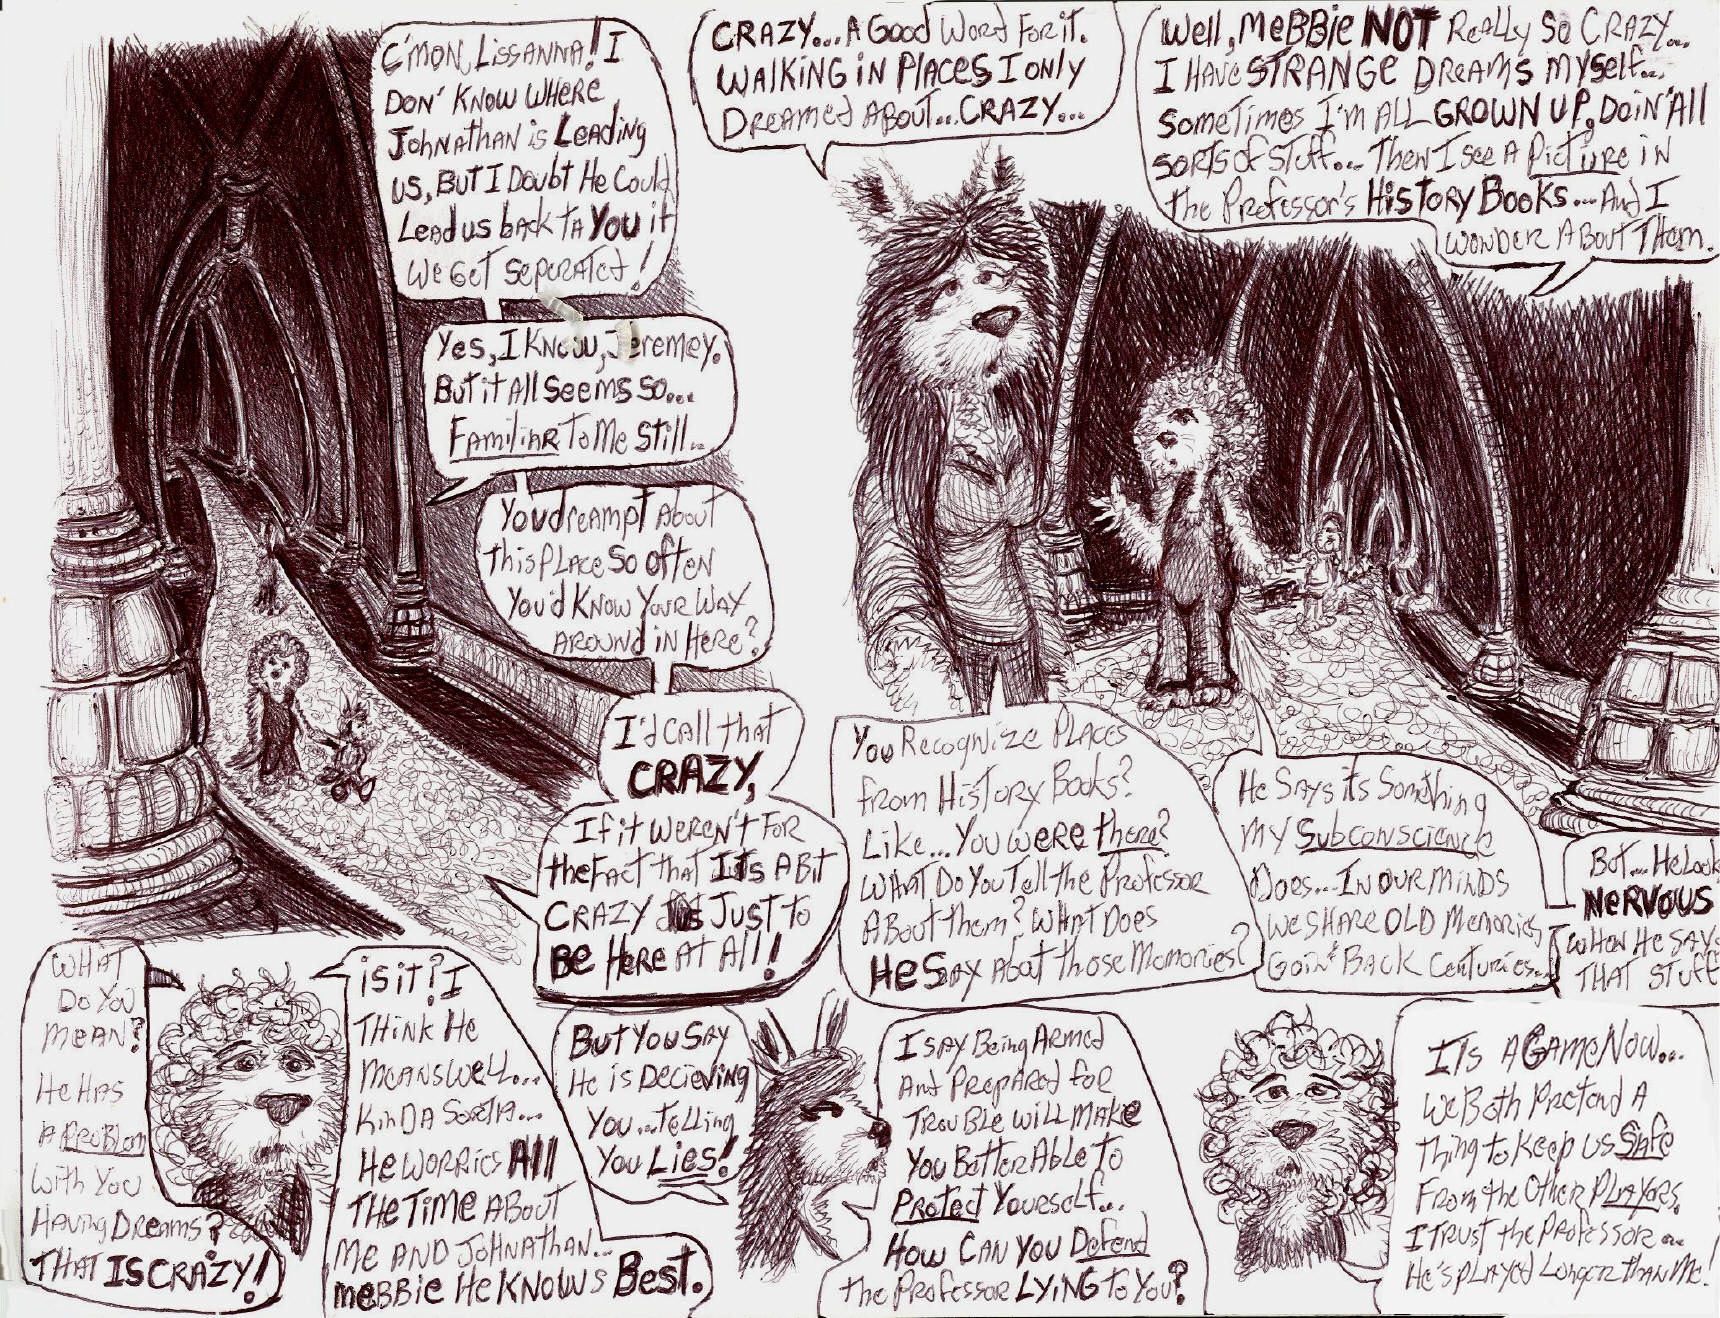 C'mon, Lissanna! I
Don' Know where
Johnathan is Leading
us, But I Doubt He Could
Lead us back ta You if
We Get Seperated!
Yes, I Know, Jeremey.
But it All Seems So...
Familiar To Me Still..
You dreampt About
this place So often
You'd Know Your Way
Around in Here?
I'd Call that
CRAZY,
If it weren't For
the Fact that It's A Bit
CRAZY Just to
Be Here At All!
CRAZY... A Good Word For it.
Walking in Places I only
Dreamed About... Crazy...
Well, Mebbie NOT Really So Crazy...
I Have STRANGE Dreams Myself...
Sometimes I'm All GROWN UP, Doin' All
Sorts of Stuff... Then I see A Picture in
the Professor's History Books... And I
Wonder About Them.
You Recognize Places
From History Books?
Like... You were there?
What Do You Tell the Professor
About them? What Does
He Say About those Memories?
He Says its Something
My Subconscience
Does... In our Minds
We share Old Memories
Goin' Back Centuries...
But... He Look
NERVOUS
When He Says
That Stuff
What
Do You
Mean?
He Has
A Problem
With You
Having Dreams?
That IS CRAZY!
is it? I
Think He
Means Well...
Kinda Sorta...
He Worries All
The Time About
Me And Johnathan...
Mebbie He Knows Best.
But You Say
He is Decieving
You... telling
You Lies!
I say Being Armed
And Prepared for
Trouble Will Make
You Better Able to
Protect Yourself...
How Can You Defend
the Professor Lying to You?
It's A Game Now...
We Both Pretend A
Thing to Keep us Safe
From the Other Players.
I Trust the Professor...
He's played Longer than Me!